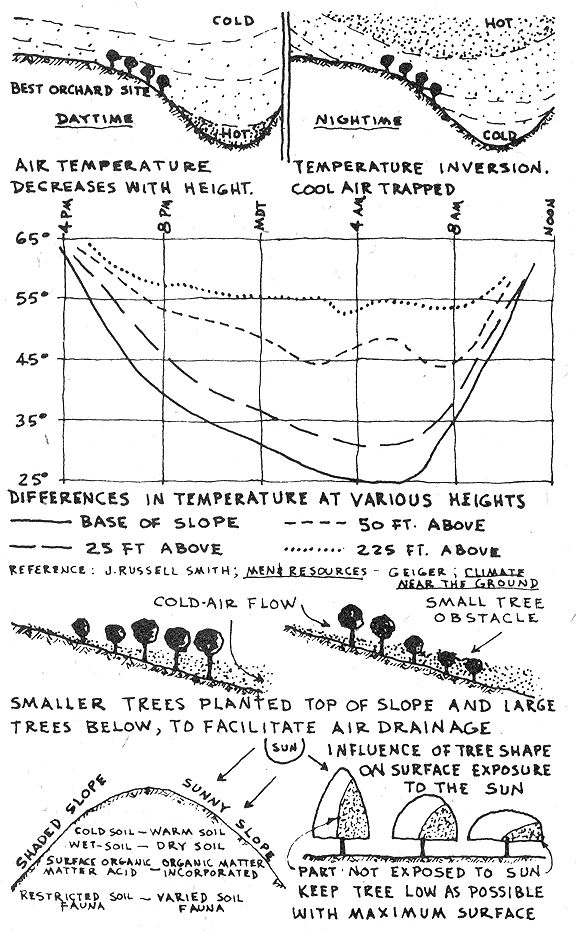 COLD
HOT
BEST ORCHARD SITE
DAYTIME
NIGHTIME
HOT
COLD
AIR TEMPERATURE
DECREASES WITH HEIGHT.
TEMPERATURE INVERSION.
COOL AIR TRAPPED
4 PM
8 PM
MDT
4 AM
8 AM
NOON
65°
55°
45°
35°
25°
DIFFERENCES IN TEMPERATURE AT VARIOUS HEIGHTS
BASE OF SLOPE
50 FT. ABOVE
25 FT ABOVE
225 FT. ABOVE
REFERENCE: J. RUSSELL SMITH; MEN & RESOURCES - GEIGER; CLIMATE
NEAR THE GROUND
COLD-AIR FLOW
SMALL TREE
OBSTACLE
SMALLER TREES PLANTED TOP OF SLOPE AND LARGE
TREES BELOW, TO FACILITATE AIR DRAINAGE
SUN
INFLUENCE OF TREE SHAPE
ON SURFACE EXPOSURE
TO THE SUN
SHADED SLOPE
SUNNY SLOPE
COLD SOIL - WARM SOIL
WET-SOIL - DRY SOIL
SURFACE ORGANIC - ORGANIC MATTER
MATTER ACID INCORPORATED
RESTRICTED SOIL - VARIED SOIL
FAUNA FAUNA
PART NOT EXPOSED TO SUN
KEEP TREE LOW AS POSSIBLE
WITH MAXIMUM SURFACE